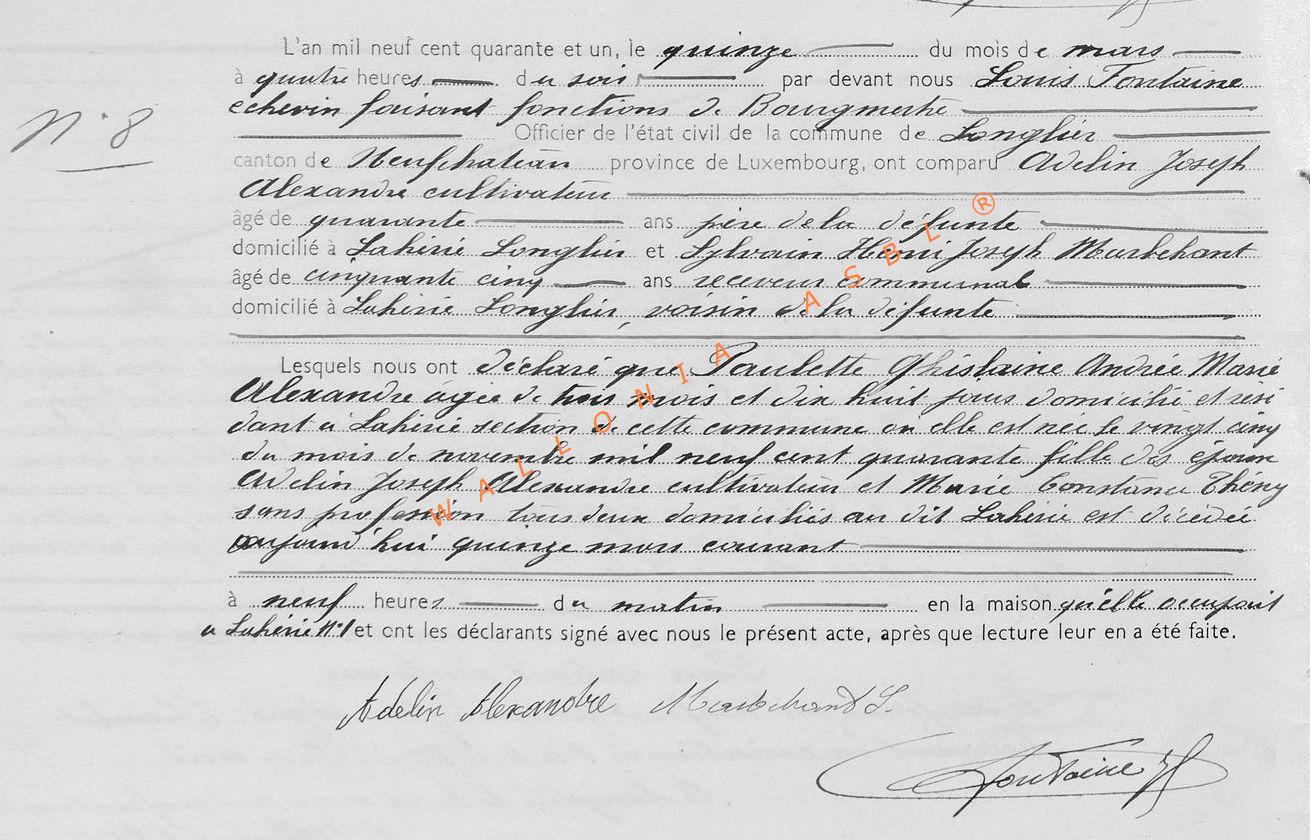 L'an mil neuf cent quarante et un, le quinze du mois de mars
à quatre heures du soir par devant nous Louis Fontaine
echevin faisant fonctions de Bourgmestre
N° 8
Officier de l'état civil de la commune de Longlier
canton de Neufchateau province de Luxembourg, ont comparu Adelin Joseph
Alexandre cultivateur
âgé de quarante ans père de la défunte
domicilié à Laherie Longlier et Sylvain Henri Joseph Marbehant
âgé de cinquante cinq ans receveur communal
domicilié à Laherie Longlier, voisin de la défunte
Lesquels nous ont déclaré que Paulette Ghislaine Andrée Marie
Alexandre agée de trois mois et dix huit jours domicilié et rési
dant à Laherie section de cette commune où elle est née le vingt cinq
du mois de novembre mil neuf cent quarante fille des époux
Adelin Joseph Alexandre cultivateur et Marie Constance Thény
sans profession tous deux domiciliés au dit Laherie est décédée
aujourd'hui quinze mars courant
à neuf heures du matin en la maison qu'elle occupait
a Laherie N°1 et ont les déclarants signé avec nous le présent acte, après que lecture leur en a été faite.
Adelin Alexandre Marbehant S.
Fontaine
WALLONIA ASBL ®